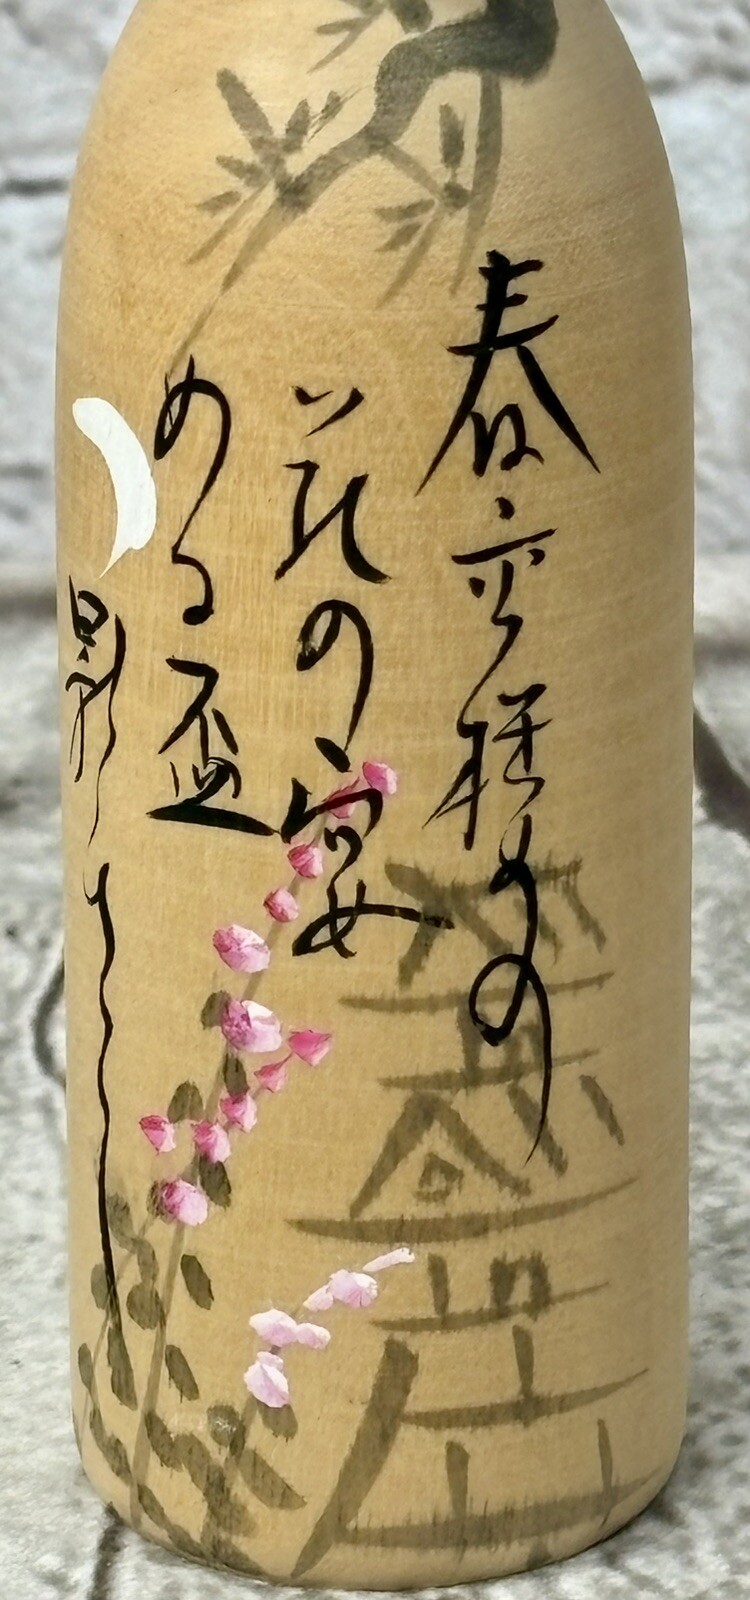 春高楼の
花の宴
める盃
影さし